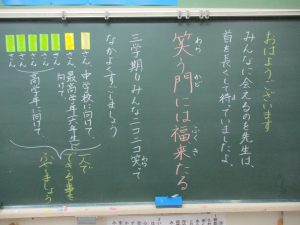 おはようございます
みんなに会えるのを先生は、
首を長くして待っていましたよ。
笑う門には福来たる
わら
かど
ふく
き
三学期もみんなニコニコ笑って
わら
なかよくすごしましょう
さん
中学校に向けて、
さん
最高学年六年生に
向けて、
さん
さん
さん
さん
高学年に向けて、
一人で
できる事を
ふやしましょう